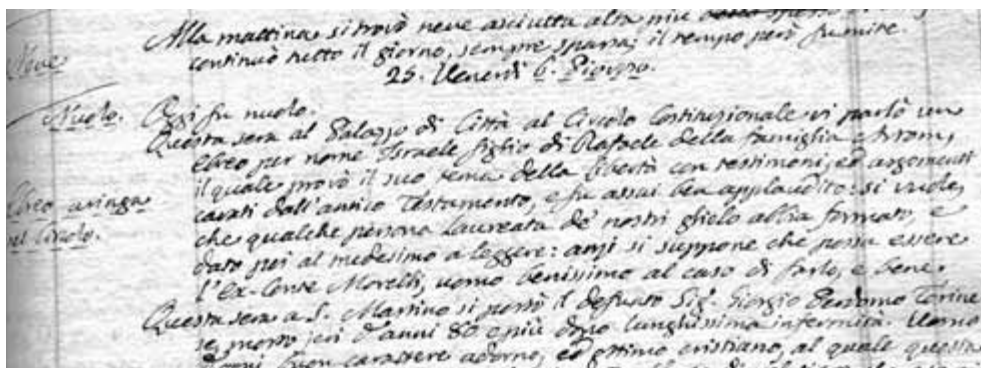 Alla mattina si trovò neve asciutta alta più
Neve
continuò tutto il giorno, sempre sparsa; il tempo però fu mite.
25. Venerdì 6. Piovoso.
Nuolo. Oggi fu nuolo.
Questa sera al Palazzo di Città al Circolo Costituzionale vi parlò un
Ebreo per nome Israele figlio di Rafaele della famiglia
il quale provò il suo tema della libertà con testimoni, ed argomenti
Ebreo aringa
cavati dall'antico Testamento, e fu assai ben applaudito: si vuole,
nel Circolo.
che qualche persona Laureata de' nostri glielo abbia formato, e
dato poi al medesimo a leggere: anzi si suppone che possa essere
l'Ex-Conte Morelli, uomo benissimo al caso di farlo, e bene.
Questa sera a S. Martino si portò il defunto Sig. Giorgio Perdomo Torine
se, morto jeri d'anni 80 e più dopo lunghissima infermità. Uomo
buon carattere adorno, ed ottimo cristiano, al quale questa